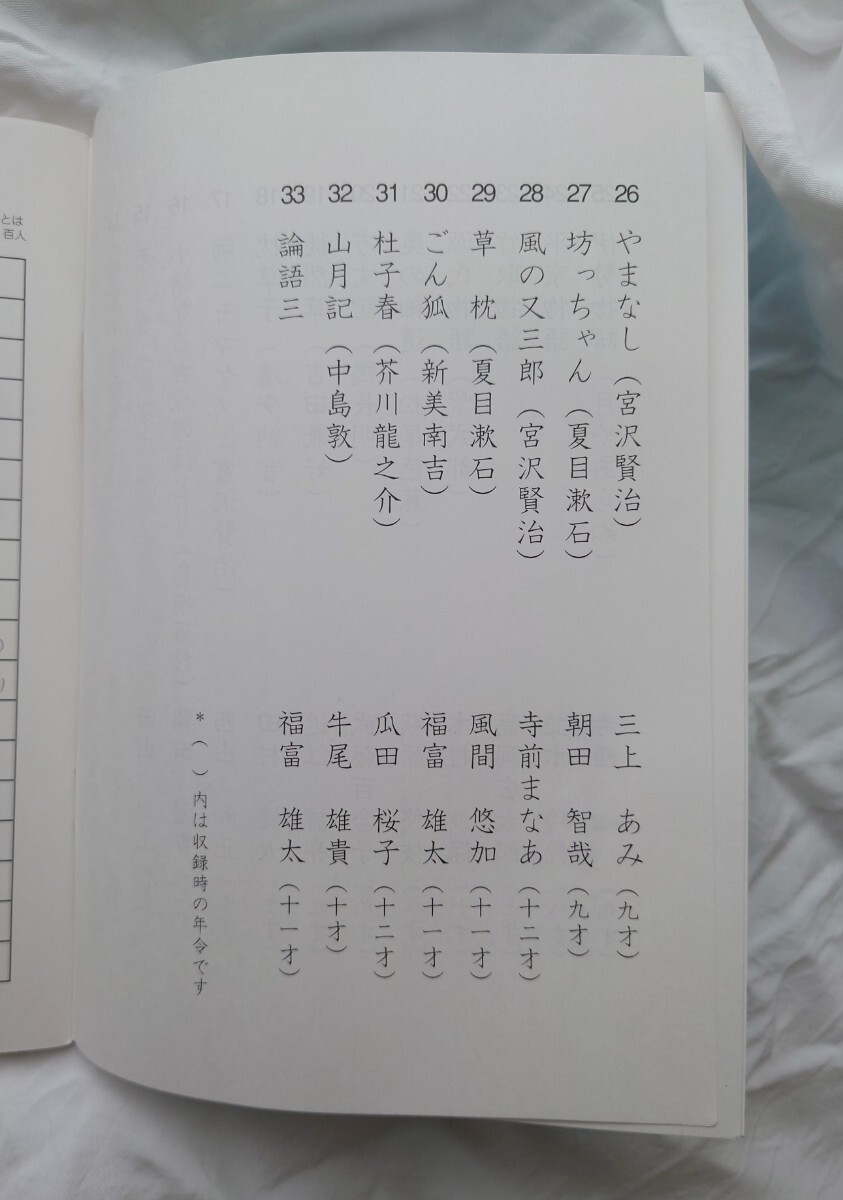 26 やまなし(宮沢賢治) 三上 あみ(九才)
27 坊っちゃん(夏目漱石) 朝田 智哉(九才)
28 風の又三郎(宮沢賢治) 寺前まなあ(十二才)
29 草 枕(夏目漱石) 風間 悠加(十一才)
30 ごん狐(新美南吉) 福富 雄太(十一才)
31 杜子春(芥川龍之介) 瓜田 桜子(十二才)
32 山月記(中島敦) 牛尾 雄貴(十才)
33 論語三 福富 雄太(十一才)
*( )内は収録時の年令です
とは
百人